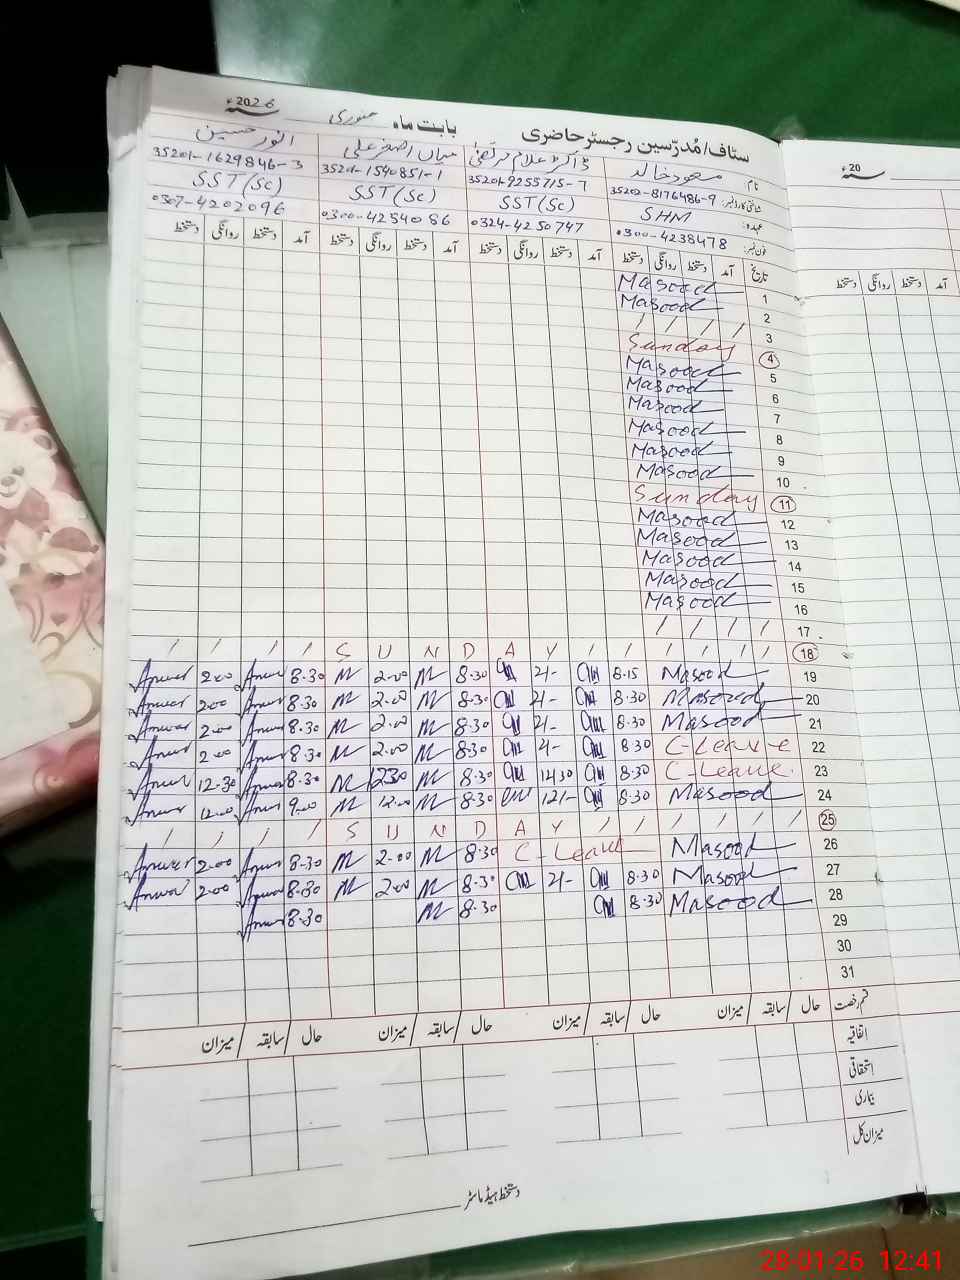 سٹاف/مُدرّسین رجسٹر حاضری بابت ماہ جنوری سنہ 2026ء
نام: مسعود خالد ڈاکٹر غلام مرتضیٰ میاں اصغر علی انور حسین
شناختی کارڈ نمبر: 35202-8176486-9 35201-9255715-7 35201-1540851-1 35201-1629846-3
عہدہ: SHM SST (Sc) SST (Sc) SST (Sc)
فون نمبر: 0300-4238478 0324-4250747 0300-4254086 0307-4202096
تاریخ آمد دستخط روانگی دستخط آمد دستخط روانگی دستخط آمد دستخط روانگی دستخط آمد دستخط روانگی دستخط
1 Masood
2 Masood
3 / / / /
4 Sunday
5 Masood
6 Masood
7 Masood
8 Masood
9 Masood
10 Masood
11 Sunday
12 Masood
13 Masood
14 Masood
15 Masood
16 Masood
17 / / / /
/ / / / S U N D A Y / / / / / / 18
Anwar 2.00 Anwar 8.30 M 2.00 M 8.30 2/- 8.15 Masood 19
Anwar 2.00 Anwar 8.30 M 2.00 M 8.30 2/- 8.30 Masood 20
Anwar 2.00 Anwar 8.30 M 2.00 M 8.30 2/- 8.30 Masood 21
Anwar 2.00 Anwar 8.30 M 2.00 M 8.30 8.30 C-Leave 22
Anwar 12.30 Anwar 8.30 M 1230 M 8.30 8.30 C-Leave 23
Anwar 12.00 Anwar 9.00 M 12.00 M 8.30 12/- 8.30 Masood 24
/ / / / S U N D A Y / / / / / / 25
Anwar 2.00 Anwar 8.30 M 2.00 M 8.30 C-Leave Masood 26
Anwar 2.00 Anwar 8.30 M 2.00 M 8.30 2/- 8.30 Masood 27
Anwar 8.30 M 8.30 8.30 Masood 28
29
30
31
قسم رخصت حال سابقہ میزان حال سابقہ میزان حال سابقہ میزان حال سابقہ میزان
اتفاقیہ
استحقاقی
بیماری
میزان کل
دستخط ہیڈ ماسٹر
20ء
آمد دستخط روانگی دستخط
28-01-26 12:41